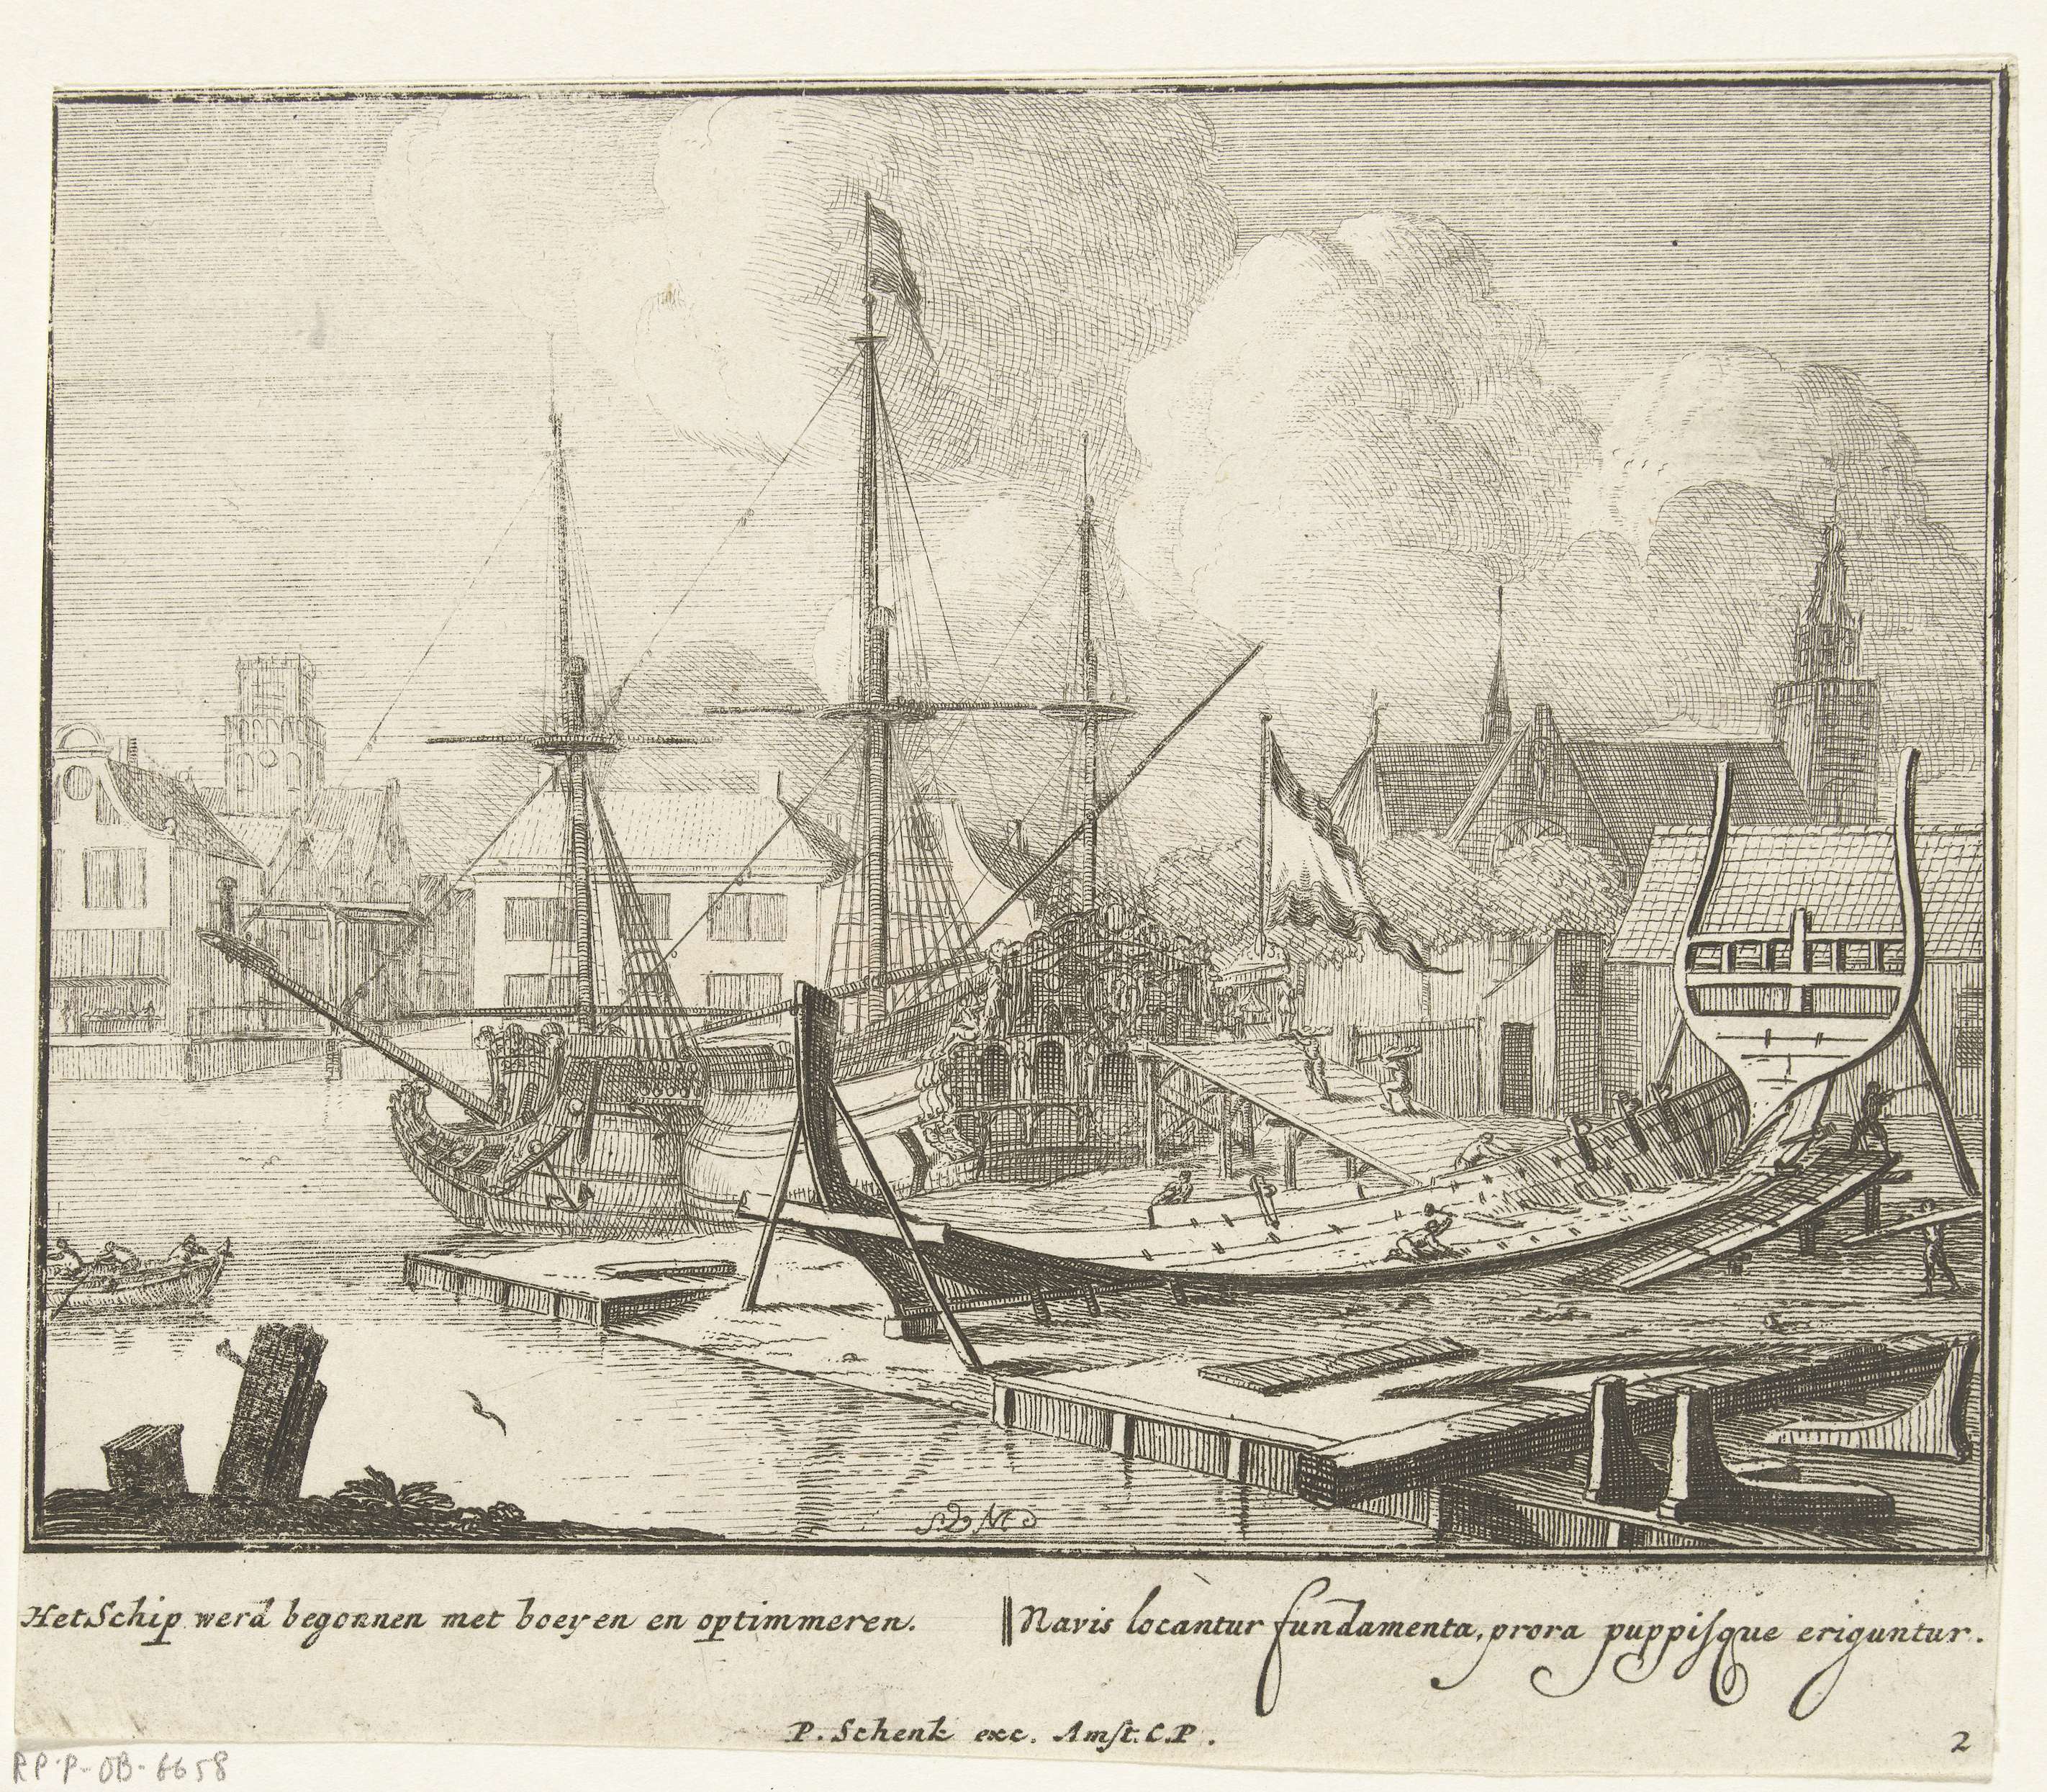 Het Schip werd begonnen met boeyen en optimmeren.
‖ Navis locantur fundamenta, prora puppiſque eriguntur.
P. Schenk exc. Amſt. C.P.
2
RP-P-OB-6658